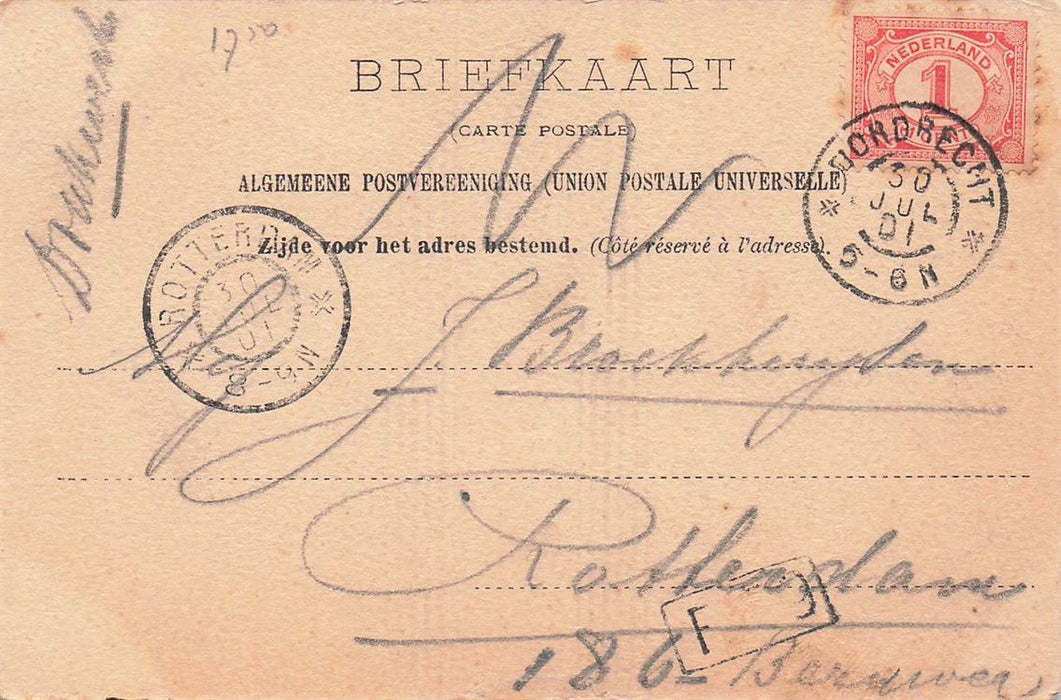 Drukwerk
17.50
BRIEFKAART
(CARTE POSTALE)
ALGEMEENE POSTVEREENIGING (UNION POSTALE UNIVERSELLE)
Zijde voor het adres bestemd. (Côté réservé à l'adresse).
NEDERLAND
1
CENT
DORDRECHT
30
JUL
01
5-6N
ROTTERDAM
30
JUL
01
8-9N
J. Broekhuyzen
Rotterdam
186
F